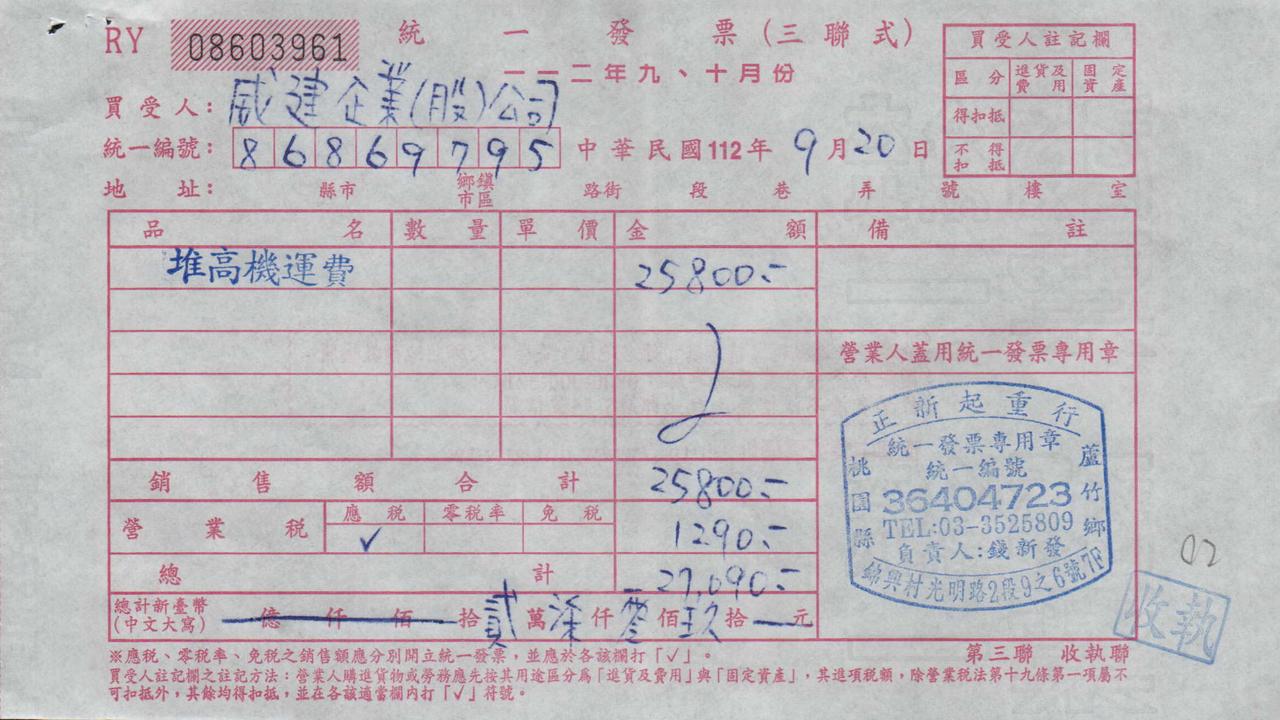 RY 08603961 統一發票(三聯式)
一一二年九、十月份
買受人註記欄
區分 進貨及費用 固定資產
得扣抵
不得扣抵
買受人：威建企業(股)公司
統一編號：86869795 中華民國112年9月20日
地址： 縣市 鄉鎮市區 路街 段 巷 弄 號 樓 室
品名 數量 單價 金額 備註
堆高機運費 25800.-
營業人蓋用統一發票專用章
銷售額合計 25800.-
營業稅 應稅 零稅率 免稅
✓ 1290.-
總計 27,090.-
總計新臺幣(中文大寫) 億 仟 佰 拾 貳 萬 柒 仟 零 佰 玖 拾 元
正新起重行
統一發票專用章
統一編號
36404723
TEL:03-3525809
負責人:錢新發
桃園縣 蘆竹鄉
錦興村光明路2段9之6號7F
02
收執
※應稅、零稅率、免稅之銷售額應分別開立統一發票，並應於各該欄打「✓」。
第三聯 收執聯
買受人註記欄之註記方法：營業人購進貨物或勞務應先按其用途區分為「進貨及費用」與「固定資產」，其進項稅額，除營業稅法第十九條第一項屬不
可扣抵外，其餘均得扣抵，並在各該適當欄內打「✓」符號。